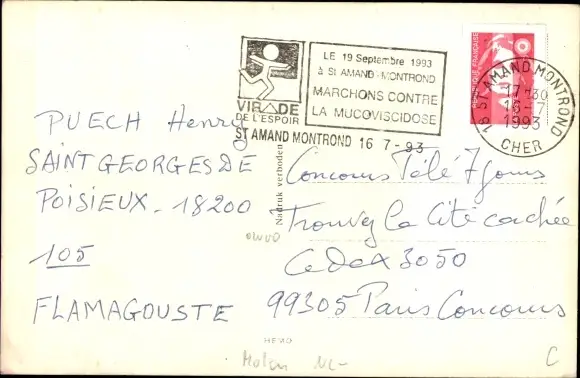 LE 19 Septembre 1993
à St AMAND-MONTROND
MARCHONS CONTRE
LA MUCOVISCIDOSE
VIRADE
DE L'ESPOIR
ST AMAND MONTROND 16 7-93
REPUBLIQUE FRANÇAISE
18 ST AMAND MONTROND
17-30
16-7
1993
CHER
PUECH Henry
SAINT GEORGES DE
POISIEUX - 18200
105
FLAMAGOUSTE
Nadruk verboden
Concours Télé 7 jours
Trouvez la Cité cachée
Cedex 3050
99305 Paris Concours
HEMO
C